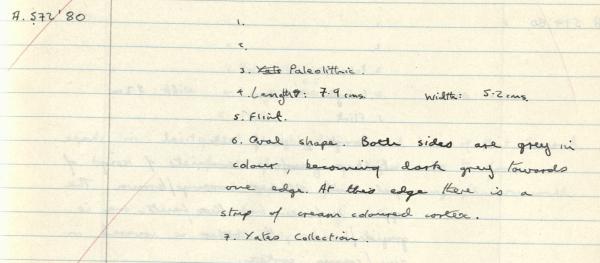 A. 572'80
1.
2.
3. Yates Paleolithic.
4. Length: 7.9 cms. Width: 5.2 cms.
5. Flint.
6. Oval shape. Both sides are grey in
colour, becoming dark grey towards
one edge. At this edge there is a
strip of cream coloured cortex.
7. Yates Collection.